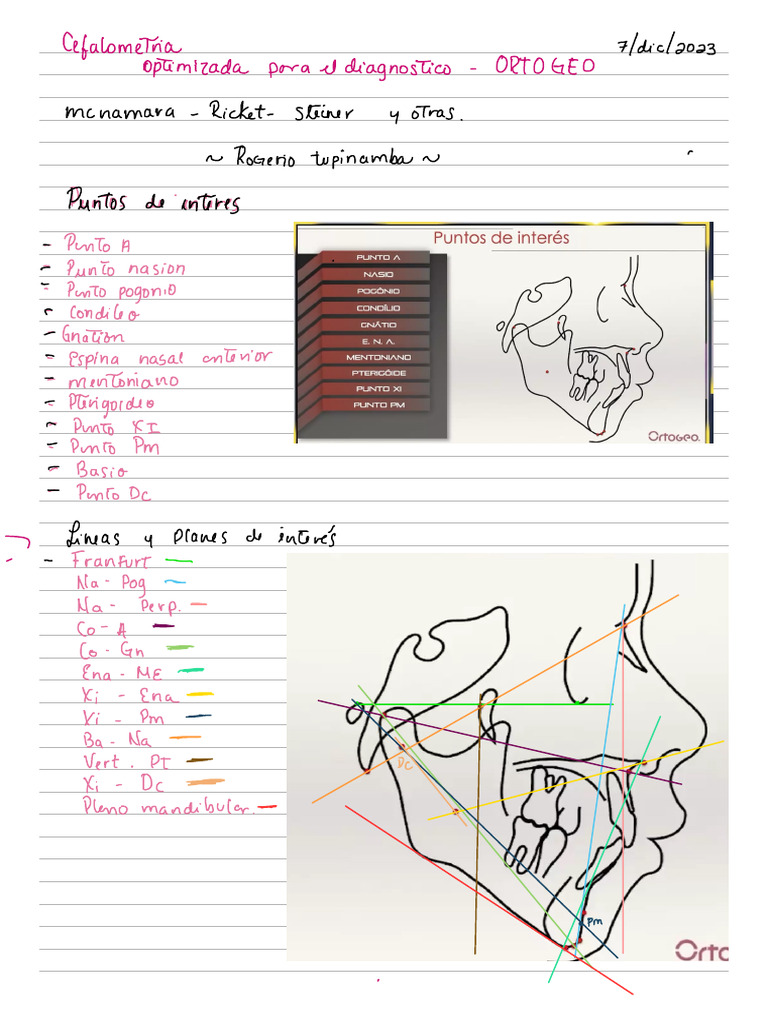 Cefalometria
7/dic/2023
optimizada para el diagnostico - ORTOGEO
mcnamara - Ricket - Steiner y otras.
~ Rogerio tupinamba ~
Puntos de interes
- Punto A
- Punto nasion
- Punto pogonio
- Condileo
- Gnation
- Espina nasal anterior
- mentoniano
- Pterigoideo
- Punto XI
- Punto Pm
- Basio
- Punto Dc
Puntos de interés
PUNTO A
NASIO
POGÔNIO
CONDÍLIO
GNÁTIO
E. N. A.
MENTONIANO
PTERIGÓIDE
PUNTO XI
PUNTO PM
Ortogeo.
Lineas y planes de interés
- Franfurt
Na - Pog
Na - Perp.
Co - A
Co - Gn
Ena - ME
Xi - Ena
Xi - Pm
Ba - Na
Vert. PT
Xi - Dc
Pleno mandibular.
Dc
Pm
Orto